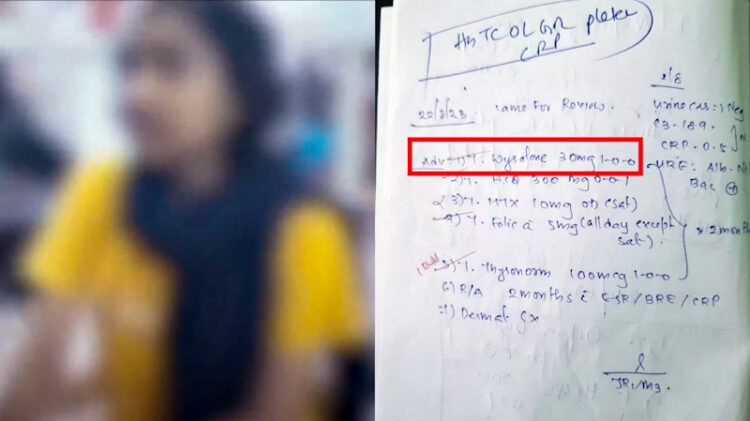 Hb TC DLC plate
CRP
22/8/23. came for Review.
Adv 1) T. Wysolone 30mg 1-0-0
2) T. HCQ 300 mg 0-0-1
3) T. MTX 10mg (sat)
4) T. Folic a 5mg (all day except
sat).
5) T. Thyronorm 100mcg 1-0-0
6) R/A 2months c ESR/BRE/CRP
7) Dermat Cx
urine c&s :) Neg
C3-189.
CRP-0.5
URE: Alb-Nil
Bac +
x 2 months
JR1/M3.